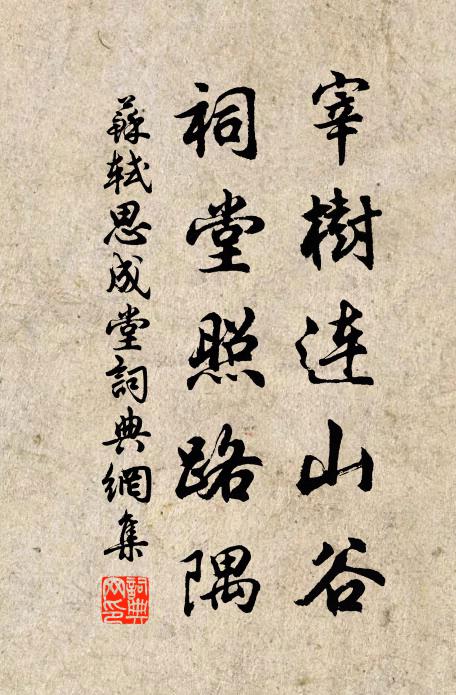 宰樹連山谷
祠堂照路隅
蘇軾思成堂詞典網集
詞典
网印